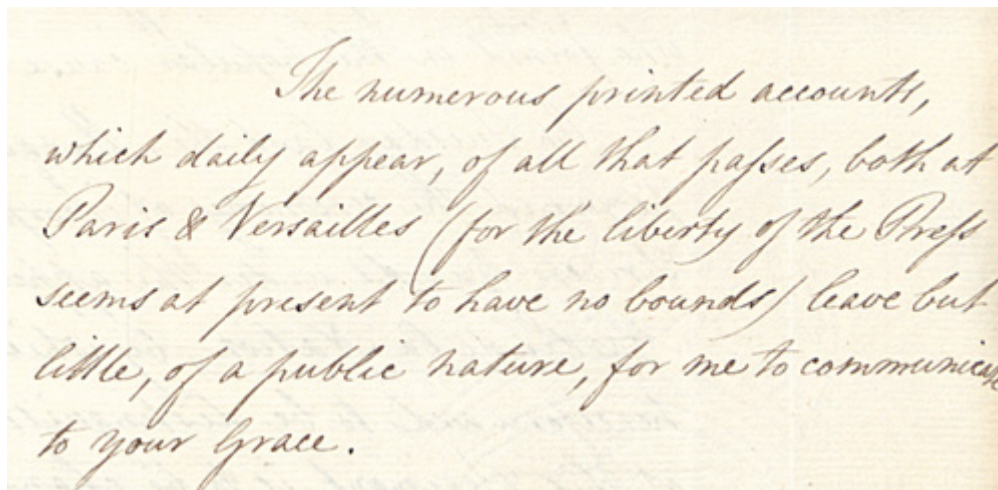 The numerous printed accounts,
which daily appear, of all that paſses, both at
Paris & Versailles (for the liberty of the Preſs
seems at present to have no bounds) leave but
little, of a public nature, for me to communicate
to your Grace.